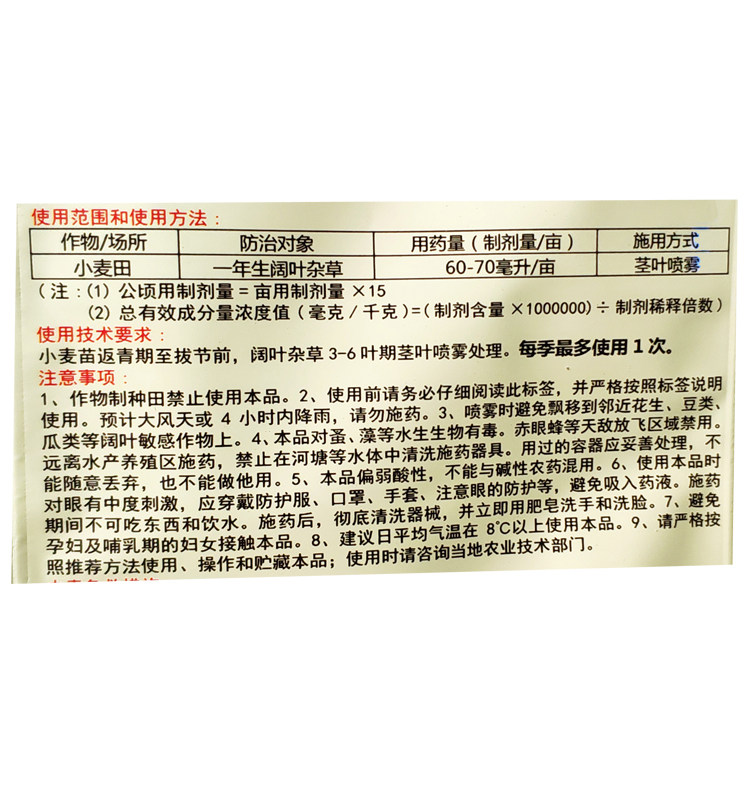 使用范围和使用方法：
作物/场所 防治对象 用药量（制剂量/亩） 施用方式
小麦田 一年生阔叶杂草 60-70毫升/亩 茎叶喷雾
（注：(1) 公顷用制剂量＝亩用制剂量 ×15
(2) 总有效成分量浓度值（毫克／千克）=（制剂含量 ×1000000）÷ 制剂稀释倍数）
使用技术要求：
小麦苗返青期至拔节前，阔叶杂草 3-6 叶期茎叶喷雾处理。每季最多使用 1 次。
注意事项：
1、作物制种田禁止使用本品。2、使用前请务必仔细阅读此标签，并严格按照标签说明
使用。预计大风天或 4 小时内降雨，请勿施药。3、喷雾时避免飘移到邻近花生、豆类、
瓜类等阔叶敏感作物上。4、本品对蚤、藻等水生生物有毒。赤眼蜂等天敌放飞区域禁用。
远离水产养殖区施药，禁止在河塘等水体中清洗施药器具。用过的容器应妥善处理，不
能随意丢弃，也不能做他用。5、本品偏弱酸性，不能与碱性农药混用。6、使用本品时
对眼有中度刺激，应穿戴防护服、口罩、手套、注意眼的防护等，避免吸入药液。施药
期间不可吃东西和饮水。施药后，彻底清洗器械，并立即用肥皂洗手和洗脸。7、避免
孕妇及哺乳期的妇女接触本品。8、建议日平均气温在 8℃以上使用本品。9、请严格按
照推荐方法使用、操作和贮藏本品；使用时请咨询当地农业技术部门。